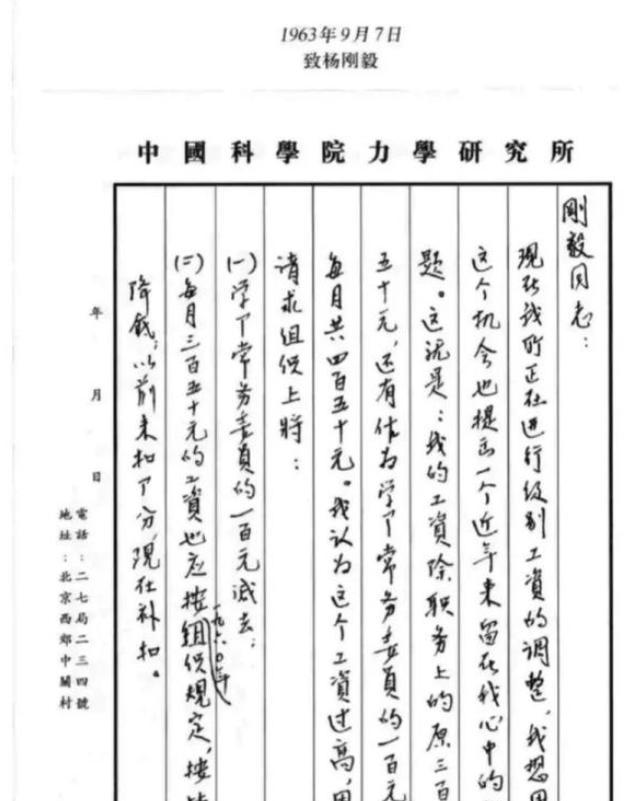 1963年9月7日
致杨刚毅
中國科學院力學研究所
剛毅同志：
现在我所正在进行级别工資的调整，我想
这个机会也提出一个近年来留在我心中的
题。这就是：我的工資除职务上的原三百
五十元，还有作为学部常务委員的一百元
每月共四百五十元。我认为这个工資过高，
请求组织上將：
(一)学部常务委員的一百元减去；
(二)每月三百五十元的工資也应按一九六〇年组织规定，按
降低；以前未扣部分，现在补扣。
年 月 日
電話：二七局二三四號
地址：北京西郊中關村